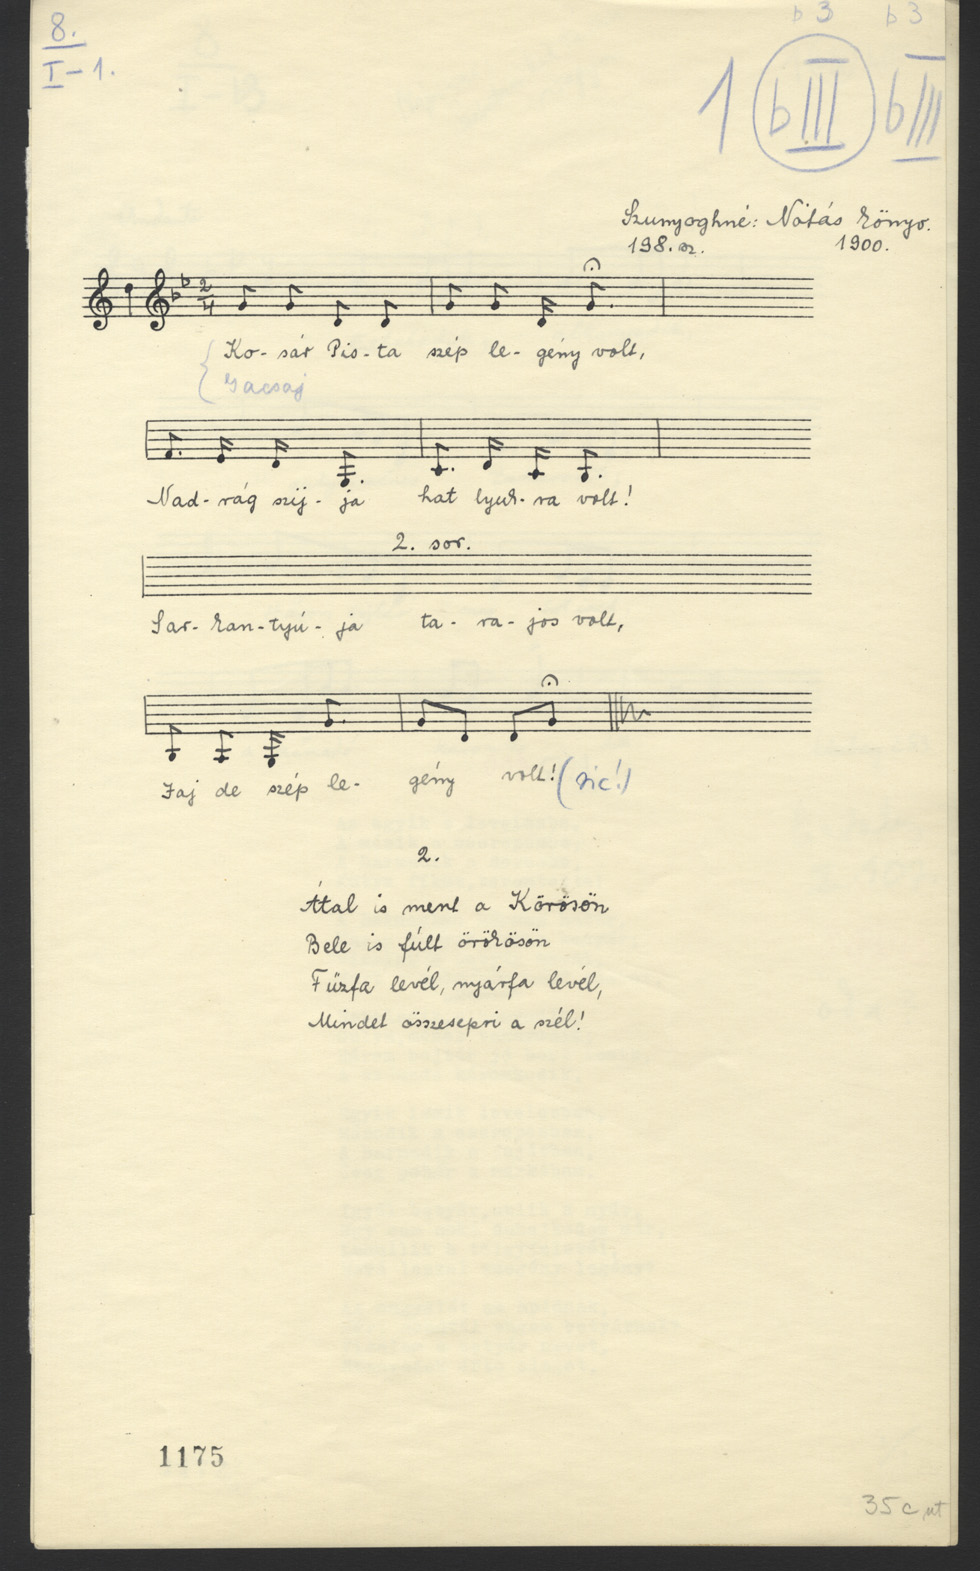 8.
I-1.
b3 b3
1 bIII bIII
Szunyoghné: Nótás könyv.
198. sz. 1900.
Ko- sár Pis- ta szép le- gény volt,
Gacsaj
Nad- rág szij- ja hat lyuk- ra volt!
2. sor.
Sar- kan- tyú- ja ta- ra- jos volt,
Jaj de szép le- gény volt! (sic!)
2.
Átal is ment a Körösön
Bele is fúlt örökösön
Fűzfa levél, nyárfa levél,
Mindet összesepri a szél!
1175
35 c